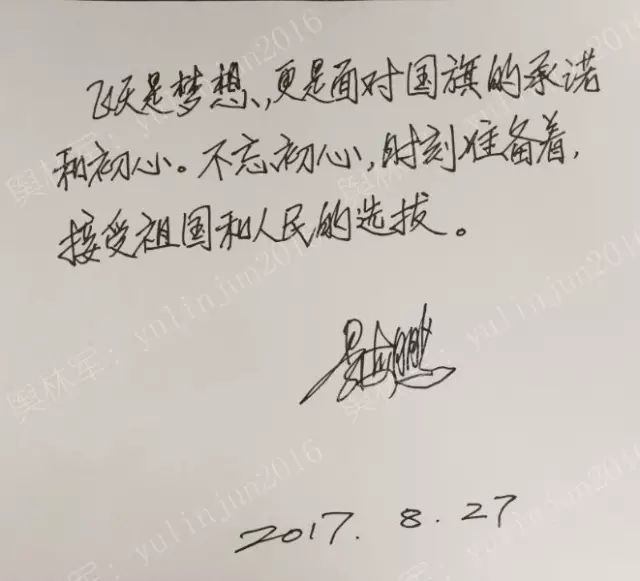 飞天是梦想,更是面对国旗的承诺
和初心。不忘初心,时刻准备着,
接受祖国和人民的选拔。
2017. 8. 27
舆林军: yulinjun2016
舆林军: yulinjun2016
舆林军: yulinjun2016
舆林军: yulinjun2016